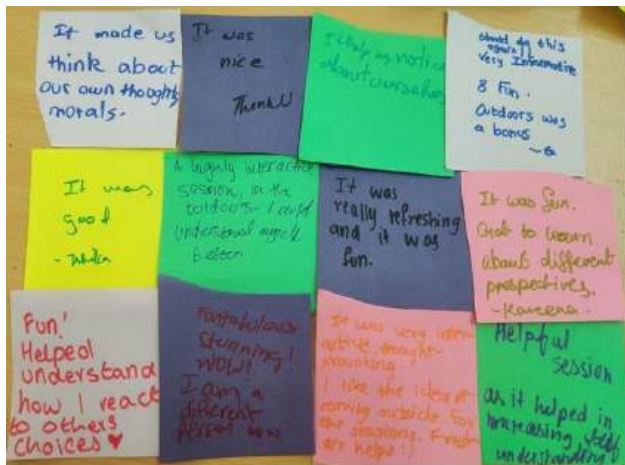 It made us
think about
our own thoughts
morals.
It was
nice
It help us notice
about ourselves
should do this
again!!
Very Informative
& Fun.
Outdoors was
a bonus
It was
good
A highly interactive
session, in the
outdoors - I could
understand myself
better
It was
really refreshing
and it was
fun.
It was fun.
Got to learn
about different
prespectives.
- Kareena.
Fun!
Helped
understand
how I react
to others
choices ♥
Fantabulous
stunning!
WOW!
I am a
different
person now
It was very inter-
active, thought-
provoking
I like the idea of
coming outside for
the sessions. Fresh
air helps!)
Helpful
session
as it helped in
increasing self
understanding